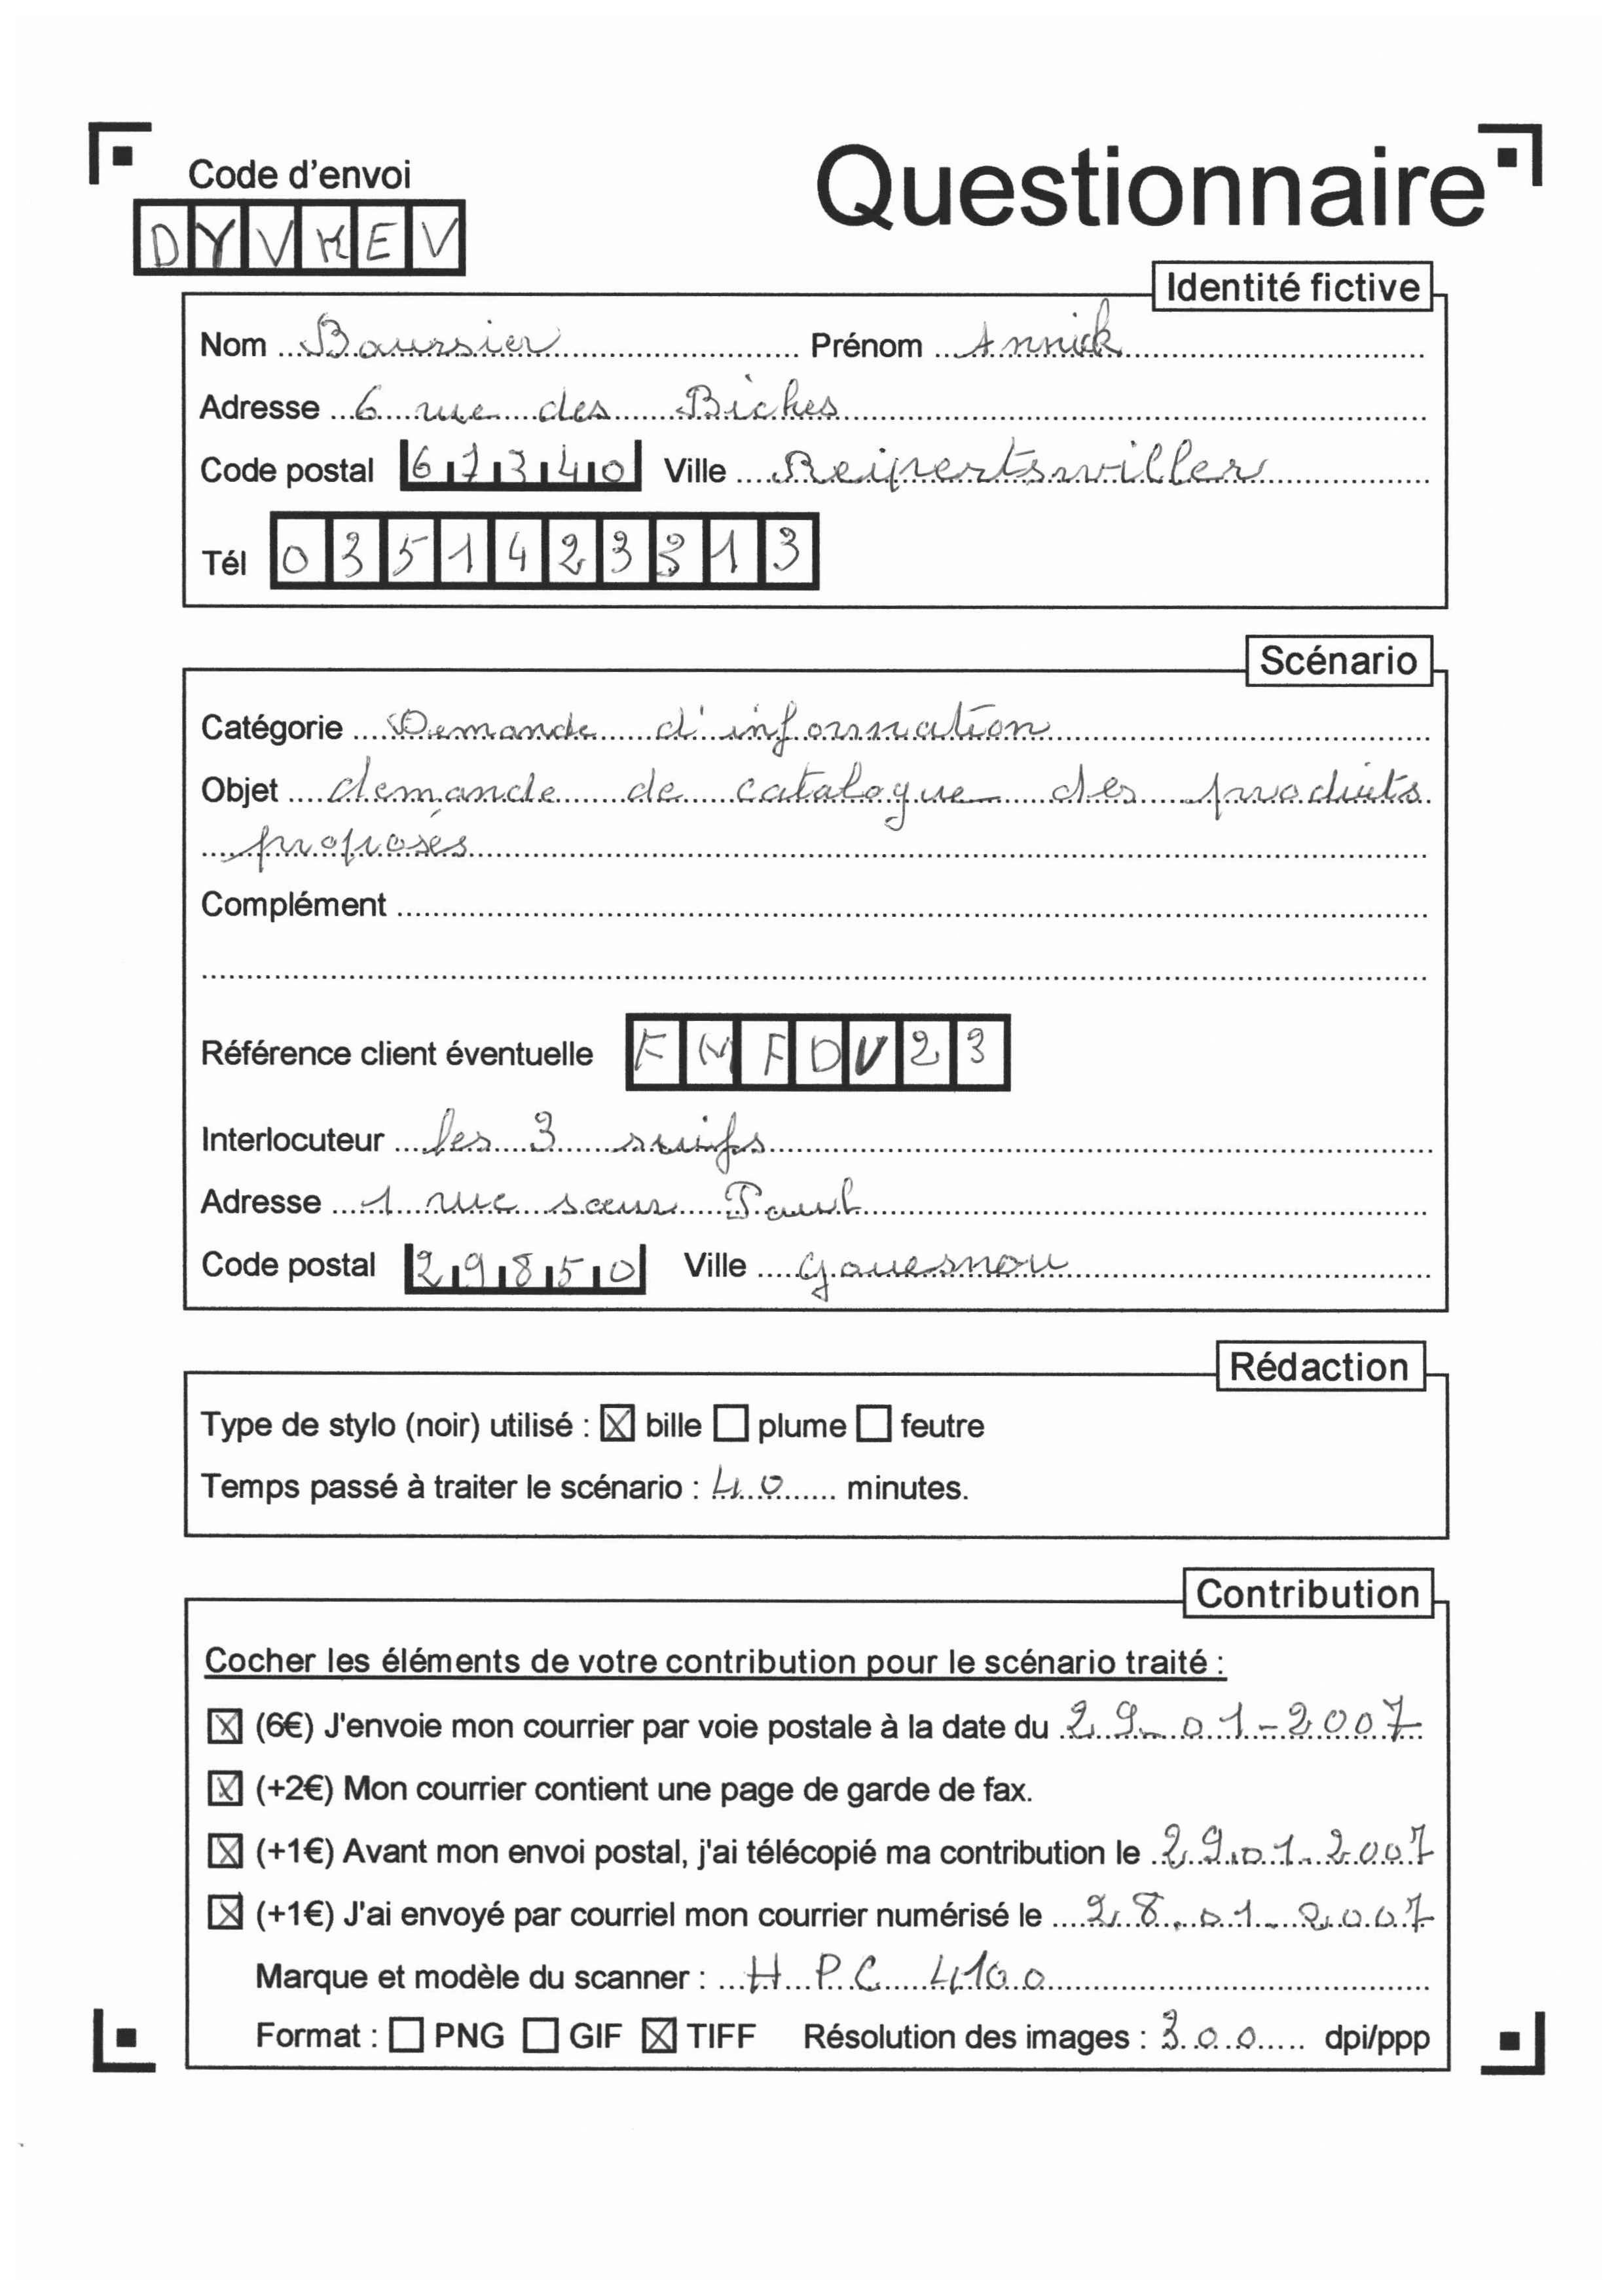 Code d'envoi
Questionnaire
DYVKEV
Identité fictive
Nom Boursier Prénom Annick
Adresse 6 rue des Biches
Code postal 67340 Ville Reipertswiller
Tél 0351423313
Scénario
Catégorie Demande d'information
Objet demande de catalogue des produits
proposés
Complément
Référence client éventuelle
Interlocuteur les 3 suifs
Adresse 1 rue sœur Paul
Code postal 29850 Ville Gouesnou
Rédaction
Type de stylo (noir) utilisé : ☒ bille ☐ plume ☐ feutre
Temps passé à traiter le scénario : 40 minutes.
Contribution
Cocher les éléments de votre contribution pour le scénario traité :
☒ (6€) J'envoie mon courrier par voie postale à la date du 29-01-2007
☒ (+2€) Mon courrier contient une page de garde de fax.
☒ (+1€) Avant mon envoi postal, j'ai télécopié ma contribution le 29.01.2007
☒ (+1€) J'ai envoyé par courriel mon courrier numérisé le 28.01.2007
Marque et modèle du scanner : HPC 4100
Format : ☐ PNG ☐ GIF ☒ TIFF Résolution des images : 300 dpi/ppp